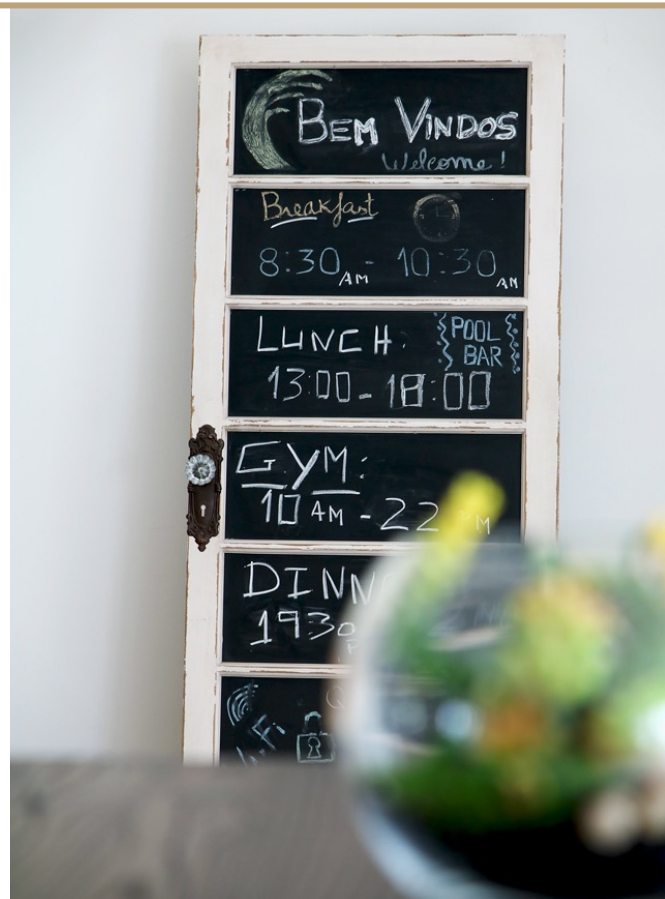 BEM VINDOS
Welcome!
Breakfast
8:30 AM - 10:30 AM
LUNCH: POOL BAR
13:00 - 18:00
GYM:
10 AM - 22
19:30